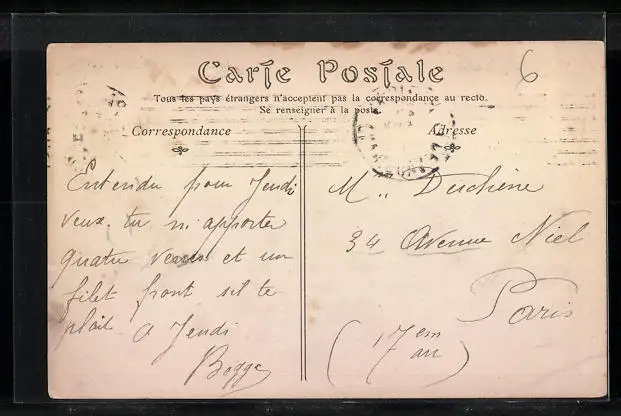 6
Carte Postale
Tous les pays étrangers n'acceptent pas la correspondance au recto.
Se renseigner à la poste
Correspondance
Adresse
Entendu pour Jeudi
veux-tu m'apporter
quatre verres et un
filet front sil te
plait a Jeudi
M.. Duchêne
34 Avenue Niel
Paris
(17em
arr)